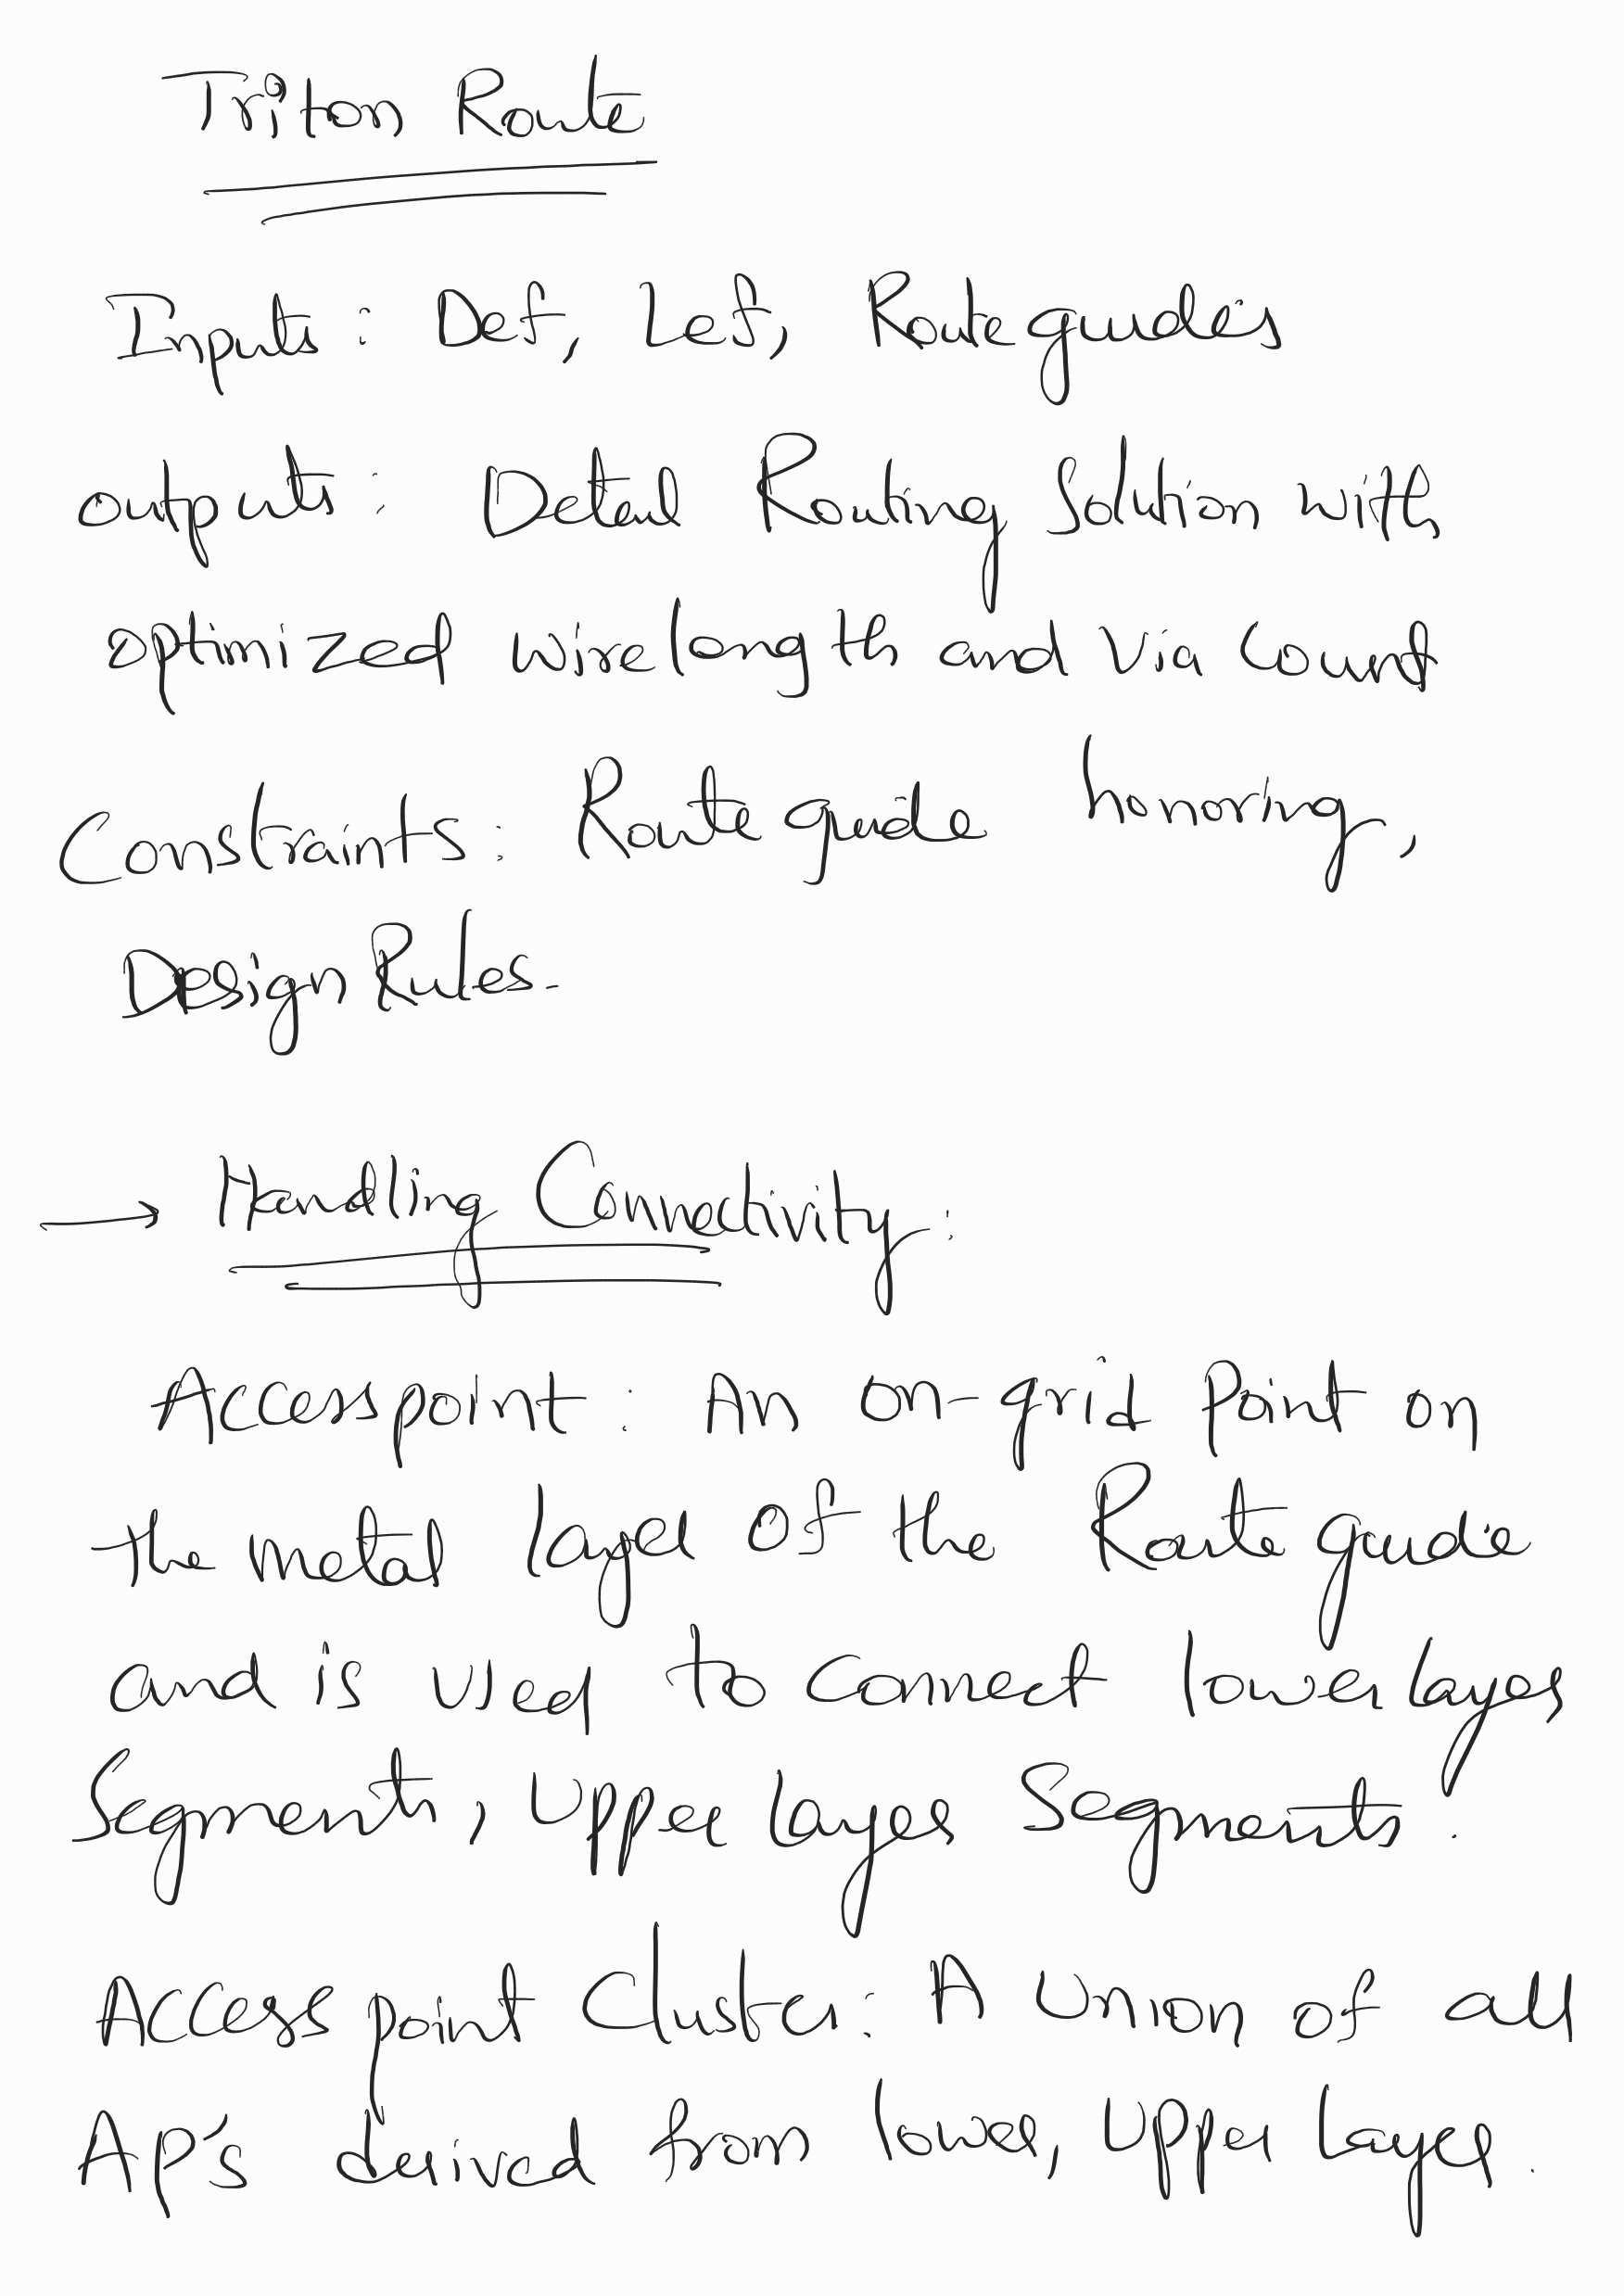 Triton Route
Inputs : Def, Lef, Route guides
outputs : Detail Routing Solution with
optimized wire length and via count
Constraints : Route guide honoring,
Design Rules.
→ Handling Connectivity :
Access point : An on-grid point on
the metal layer of the Route guide
and is used to connect lower layer
Segments, Upper layer Segments.
Access point Cluster : A Union of all
AP's derived from lower, Upper layer.